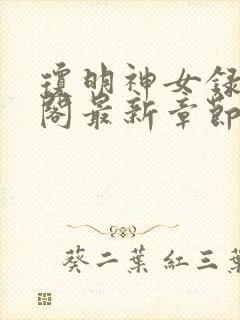 瓊明神女録
閣最新章節
葵二葉 紅三葉